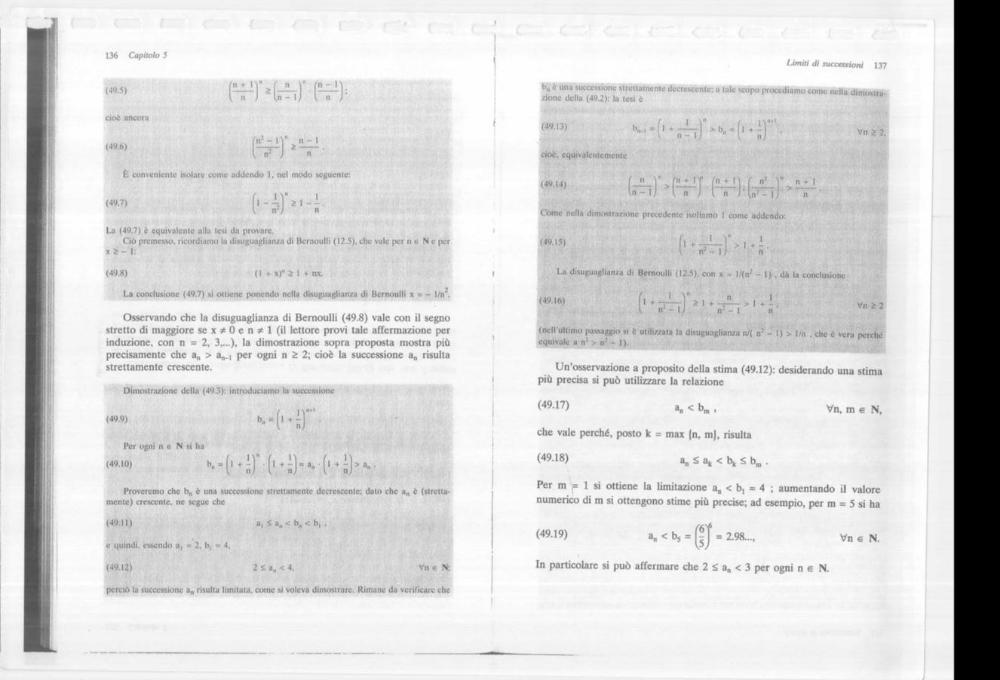 136 Capitolo 5
(49.5) ((n + 1)/n)ⁿ ≥ (n/(n − 1))ⁿ · ((n − 1)/n);
cioè ancora
(49.6) ((n² − 1)/n²)ⁿ ≥ (n − 1)/n .
È conveniente isolare come addendo 1, nel modo seguente:
(49.7) (1 − 1/n²)ⁿ ≥ 1 − 1/n .
La (49.7) è equivalente alla tesi da provare.
Ciò premesso, ricordiamo la disuguaglianza di Bernoulli (12.5), che vale per n ∈ N e per
x ≥ − 1:
(49.8) (1 + x)ⁿ ≥ 1 + nx.
La conclusione (49.7) si ottiene ponendo nella disuguaglianza di Bernoulli x = − 1/n².
Osservando che la disuguaglianza di Bernoulli (49.8) vale con il segno
stretto di maggiore se x ≠ 0 e n ≠ 1 (il lettore provi tale affermazione per
induzione, con n = 2, 3,...), la dimostrazione sopra proposta mostra più
precisamente che aₙ > aₙ₋₁ per ogni n ≥ 2; cioè la successione aₙ risulta
strettamente crescente.
Dimostrazione della (49.3): introduciamo la successione
(49.9) bₙ = (1 + 1/n)ⁿ⁺¹ .
Per ogni n ∈ N si ha
(49.10) bₙ = (1 + 1/n)ⁿ · (1 + 1/n) = aₙ · (1 + 1/n) > aₙ .
Proveremo che bₙ è una successione strettamente decrescente; dato che aₙ è (stretta-
mente) crescente, ne segue che
(49.11) a₁ ≤ aₙ < bₙ < b₁ ,
e quindi, essendo a₁ = 2, b₁ = 4,
(49.12) 2 ≤ aₙ < 4, ∀n ∈ N;
perciò la successione aₙ risulta limitata, come si voleva dimostrare. Rimane da verificare che
Limiti di successioni 137
bₙ è una successione strettamente decrescente; a tale scopo procediamo come nella dimostra-
zione della (49.2): la tesi è
(49.13) bₙ₋₁ = (1 + 1/(n − 1))ⁿ > bₙ = (1 + 1/n)ⁿ⁺¹ , ∀n ≥ 2,
cioè, equivalentemente
(49.14) (n/(n − 1))ⁿ > ((n + 1)/n)ⁿ · ((n + 1)/n); (n²/(n² − 1))ⁿ > (n + 1)/n .
Come nella dimostrazione precedente isoliamo 1 come addendo:
(49.15) (1 + 1/(n² − 1))ⁿ > 1 + 1/n .
La disuguaglianza di Bernoulli (12.5), con x = 1/(n² − 1), dà la conclusione
(49.16) (1 + 1/(n² − 1))ⁿ ≥ 1 + n/(n² − 1) > 1 + 1/n , ∀n ≥ 2
(nell'ultimo passaggio si è utilizzata la disuguaglianza n/( n² − 1) > 1/n , che è vera perché
equivale a n² > n² − 1).
Un'osservazione a proposito della stima (49.12): desiderando una stima
più precisa si può utilizzare la relazione
(49.17) aₙ < bₘ , ∀n, m ∈ N,
che vale perché, posto k = max {n, m}, risulta
(49.18) aₙ ≤ aₖ < bₖ ≤ bₘ .
Per m = 1 si ottiene la limitazione aₙ < b₁ = 4 ; aumentando il valore
numerico di m si ottengono stime più precise; ad esempio, per m = 5 si ha
(49.19) aₙ < b₅ = (6/5)⁶ = 2.98..., ∀n ∈ N.
In particolare si può affermare che 2 ≤ aₙ < 3 per ogni n ∈ N.